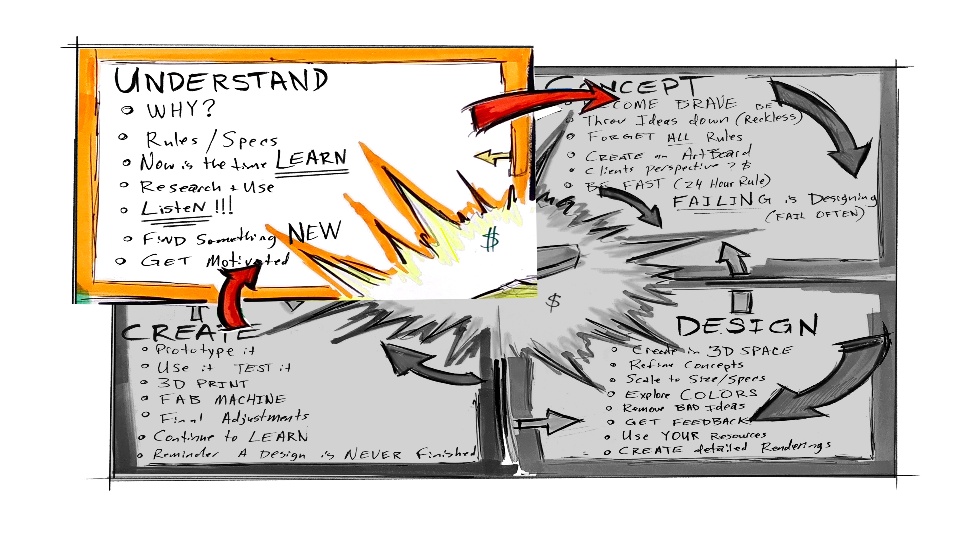 UNDERSTAND
WHY?
Rules/Specs
Now is the time LEARN
Research + Use
Listen!!!
FIND Something NEW
GET Motivated
$
CONCEPT
BECOME BRAVE BE
Throw Ideas down (Reckless)
FORGET ALL Rules
CREATE an Art Board
Clients perspective ? $
BE FAST (24 Hour Rule)
FAILING is Designing
(FAIL OFTEN)
$
CREATE
Prototype it
Use it TEST it
3D PRINT
FAB MACHINE
Final Adjustments
Continue to LEARN
Reminder A Design is NEVER Finished
DESIGN
Create in 3D SPACE
Refine Concepts
Scale to Size/Specs
Explore COLORS
Remove BAD Ideas
GET FEEDBACK
Use YOUR Resources
CREATE detailed Renderings